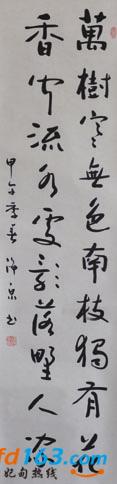 萬樹寒無色南枝獨有花
香聞流水處影落野人家
甲午季春
fd163.com
妃甸热线